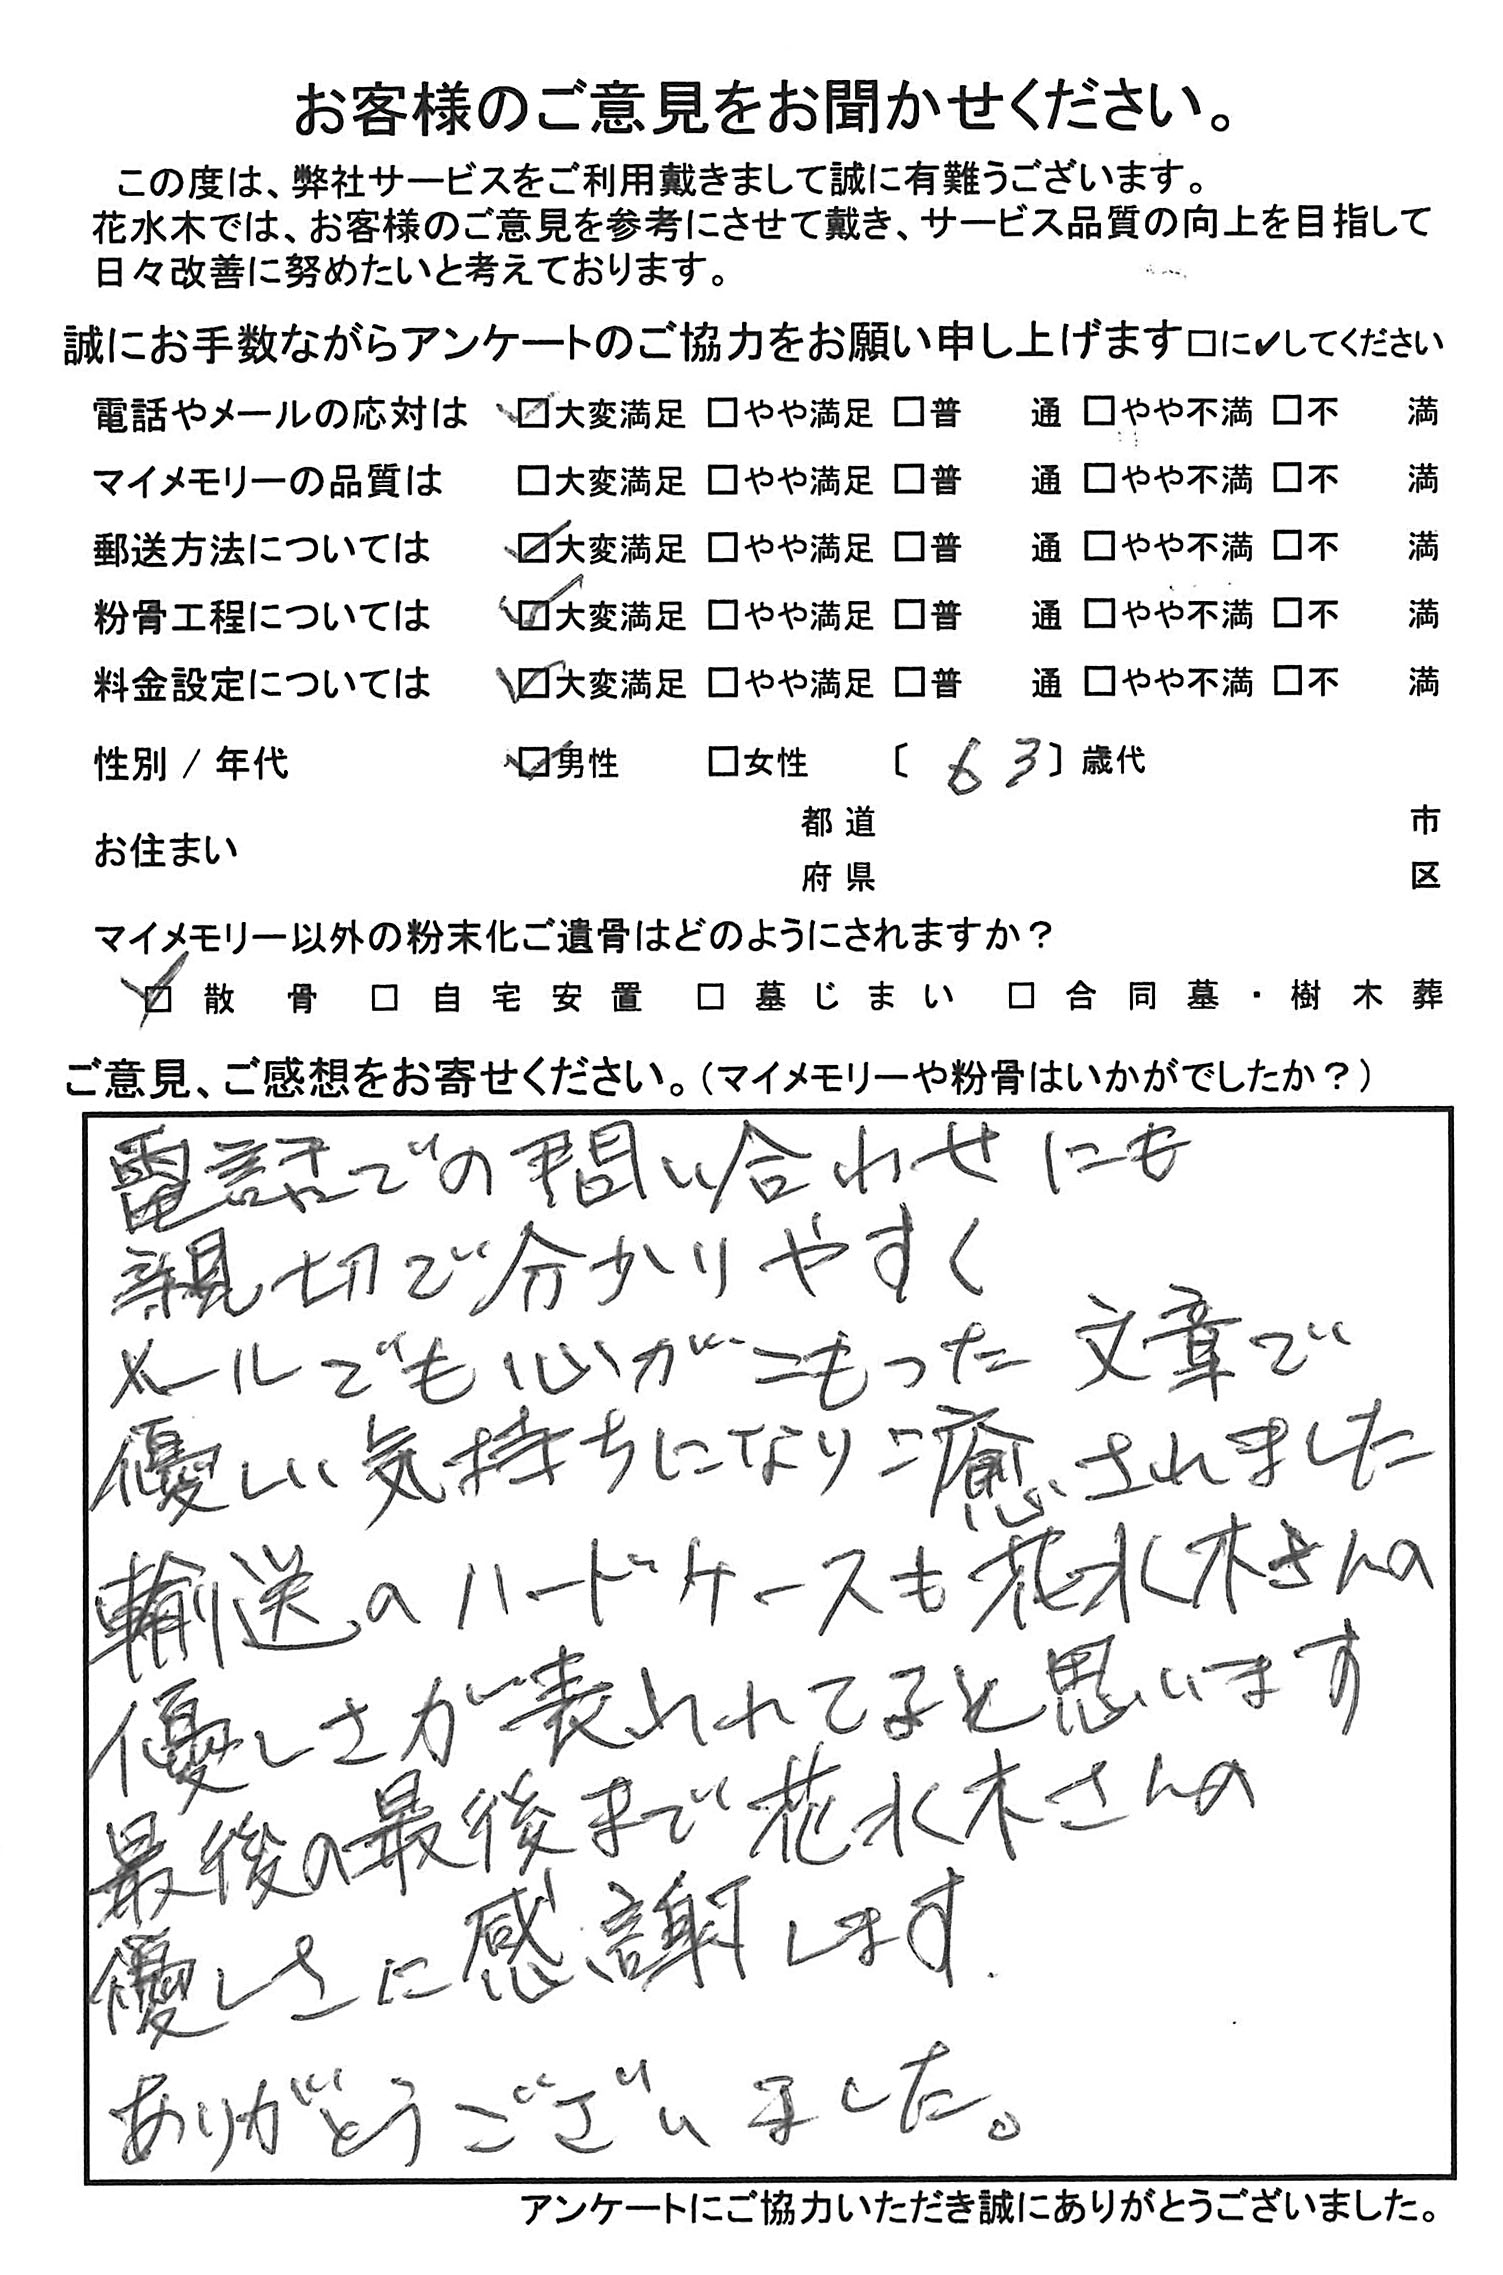 お客様のご意見をお聞かせください。
この度は、弊社サービスをご利用戴きまして誠に有難うございます。
花水木では、お客様のご意見を参考にさせて戴き、サービス品質の向上を目指して
日々改善に努めたいと考えております。
誠にお手数ながらアンケートのご協力をお願い申し上げます□に✔してください
電話やメールの応対は ☑大変満足 □やや満足 □普 通 □やや不満 □不 満
マイメモリーの品質は □大変満足 □やや満足 □普 通 □やや不満 □不 満
郵送方法については ☑大変満足 □やや満足 □普 通 □やや不満 □不 満
粉骨工程については ☑大変満足 □やや満足 □普 通 □やや不満 □不 満
料金設定については ☑大変満足 □やや満足 □普 通 □やや不満 □不 満
性別 / 年代 ☑男性 □女性 〔 63 〕歳代
お住まい 都道 市
府県 区
マイメモリー以外の粉末化ご遺骨はどのようにされますか？
☑ 散骨 □ 自宅安置 □ 墓じまい □ 合同墓・樹木葬
ご意見、ご感想をお寄せください。（マイメモリーや粉骨はいかがでしたか？）
電話での問い合わせにも
親切で分かりやすく
メールでも心がこもった文章で
優しい気持ちになり癒されました
輸送のハードケースも花水木さんの
優しさが表われてると思います
最後の最後まで花水木さんの
優しさに感謝します.
ありがとうございました。
アンケートにご協力いただき誠にありがとうございました。